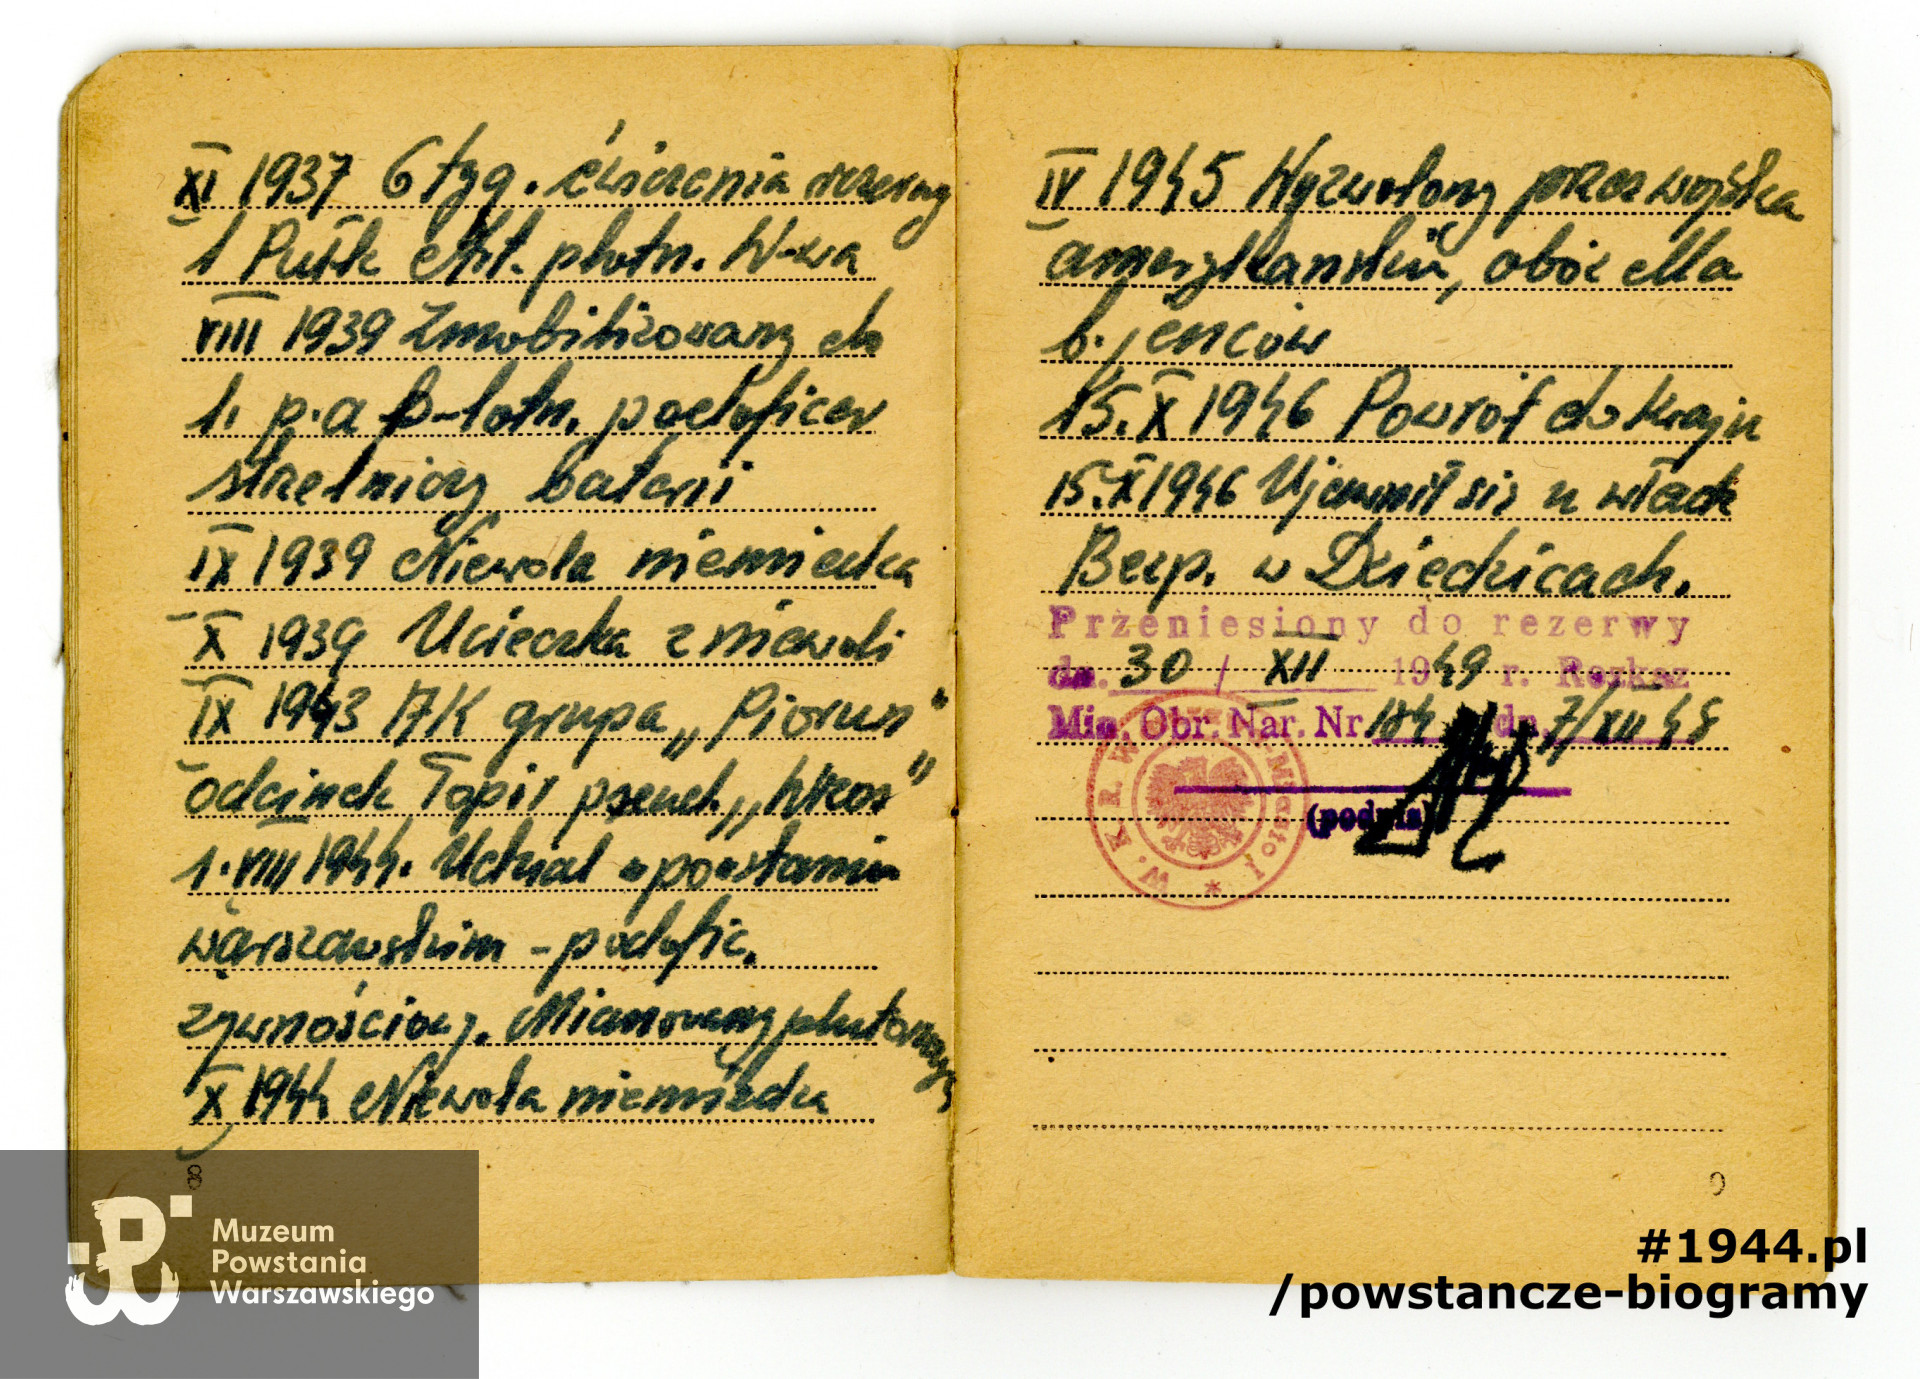 XI 1937 6 tyg. ćwiczenia rezerwy
1 Pułk Art. plotn. W-wa
VIII 1939 Zmobilizowany do
1. p. a p-lotn. podoficer
strzelniczy baterii
IX 1939 Niewola niemiecka
X 1939 Ucieczka z niewoli
IX 1943 AK grupa „Piorun"
odcinek Topir pseud. „Wrzos"
1. VIII 1944. Udział w powstaniu
warszawskim - podofic.
żywnościowy. Mianowany plutonowym
X 1944 Niewola niemiecka
8
IV 1945 Wyzwolony przez wojska
amerykańskie, obóz dla
b. jenców
15. X 1946 Powrót do kraju
15. X 1946 Ujawnił się u władz
Bezp. w Dziedzicach.
Przeniesiony do rezerwy
dn. 30 / XII 1949 r. Rozkaz
Min. Obr. Nar. Nr 184 dn. 7/XII 48
(podpis)
W. K. R. W -Miasto I
9
Muzeum
Powstania
Warszawskiego
#1944.pl
/powstancze-biogramy